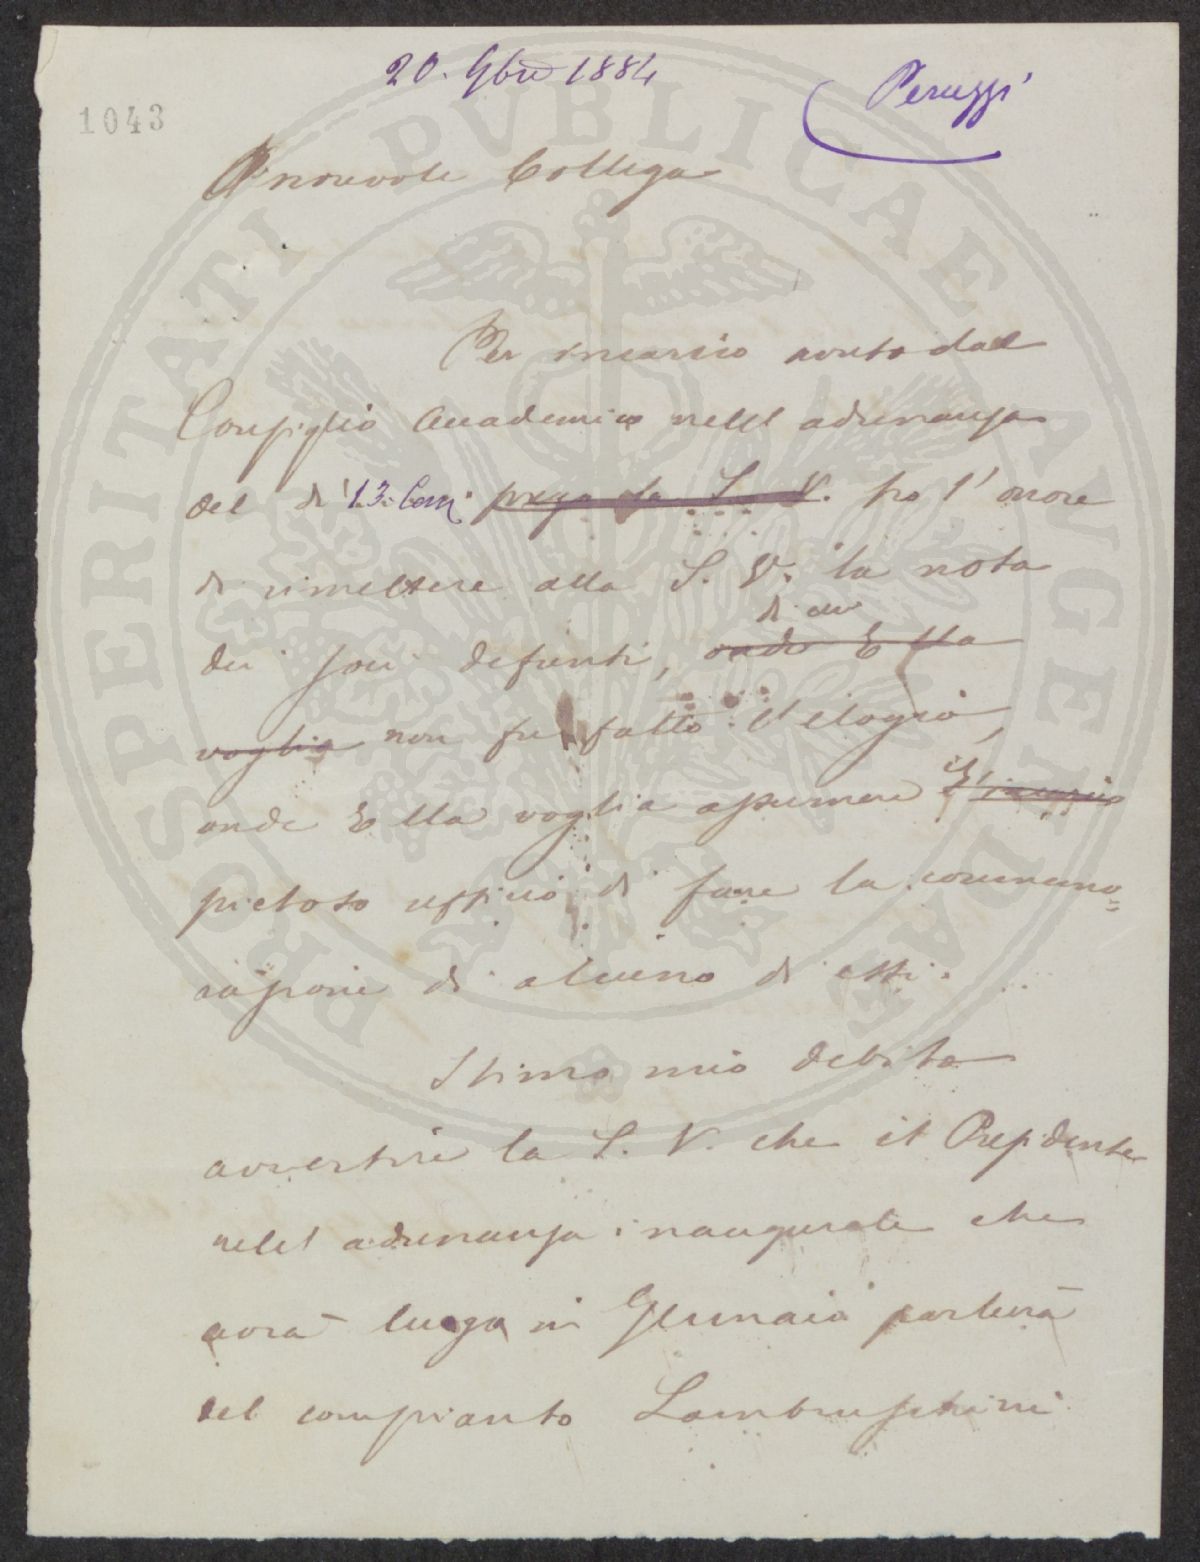 20. 9bre 1884
Peruzzi
1043
Onorevole Collega
Per incarico avuto dal
Consiglio Accademico nell'adunanza
del dì 13. Corr. prega la S. V. ho l'onore
di rimettere alla S. V. la nota
di cui
dei soci defunti, onde Ella
voglia non fu fatto l'elogio,
il
onde Ella voglia assumere l'incarico
pietoso ufficio di fare la commemo=
razione di alcuno di essi.
Stimo mio debito
avvertire la S. V. che il Presidente
nell'adunanza inaugurale che
avrà luogo in Gennaio parlerà
del compianto Lambruschini
PROSPERITATI PVBLICAE AVGENDAE